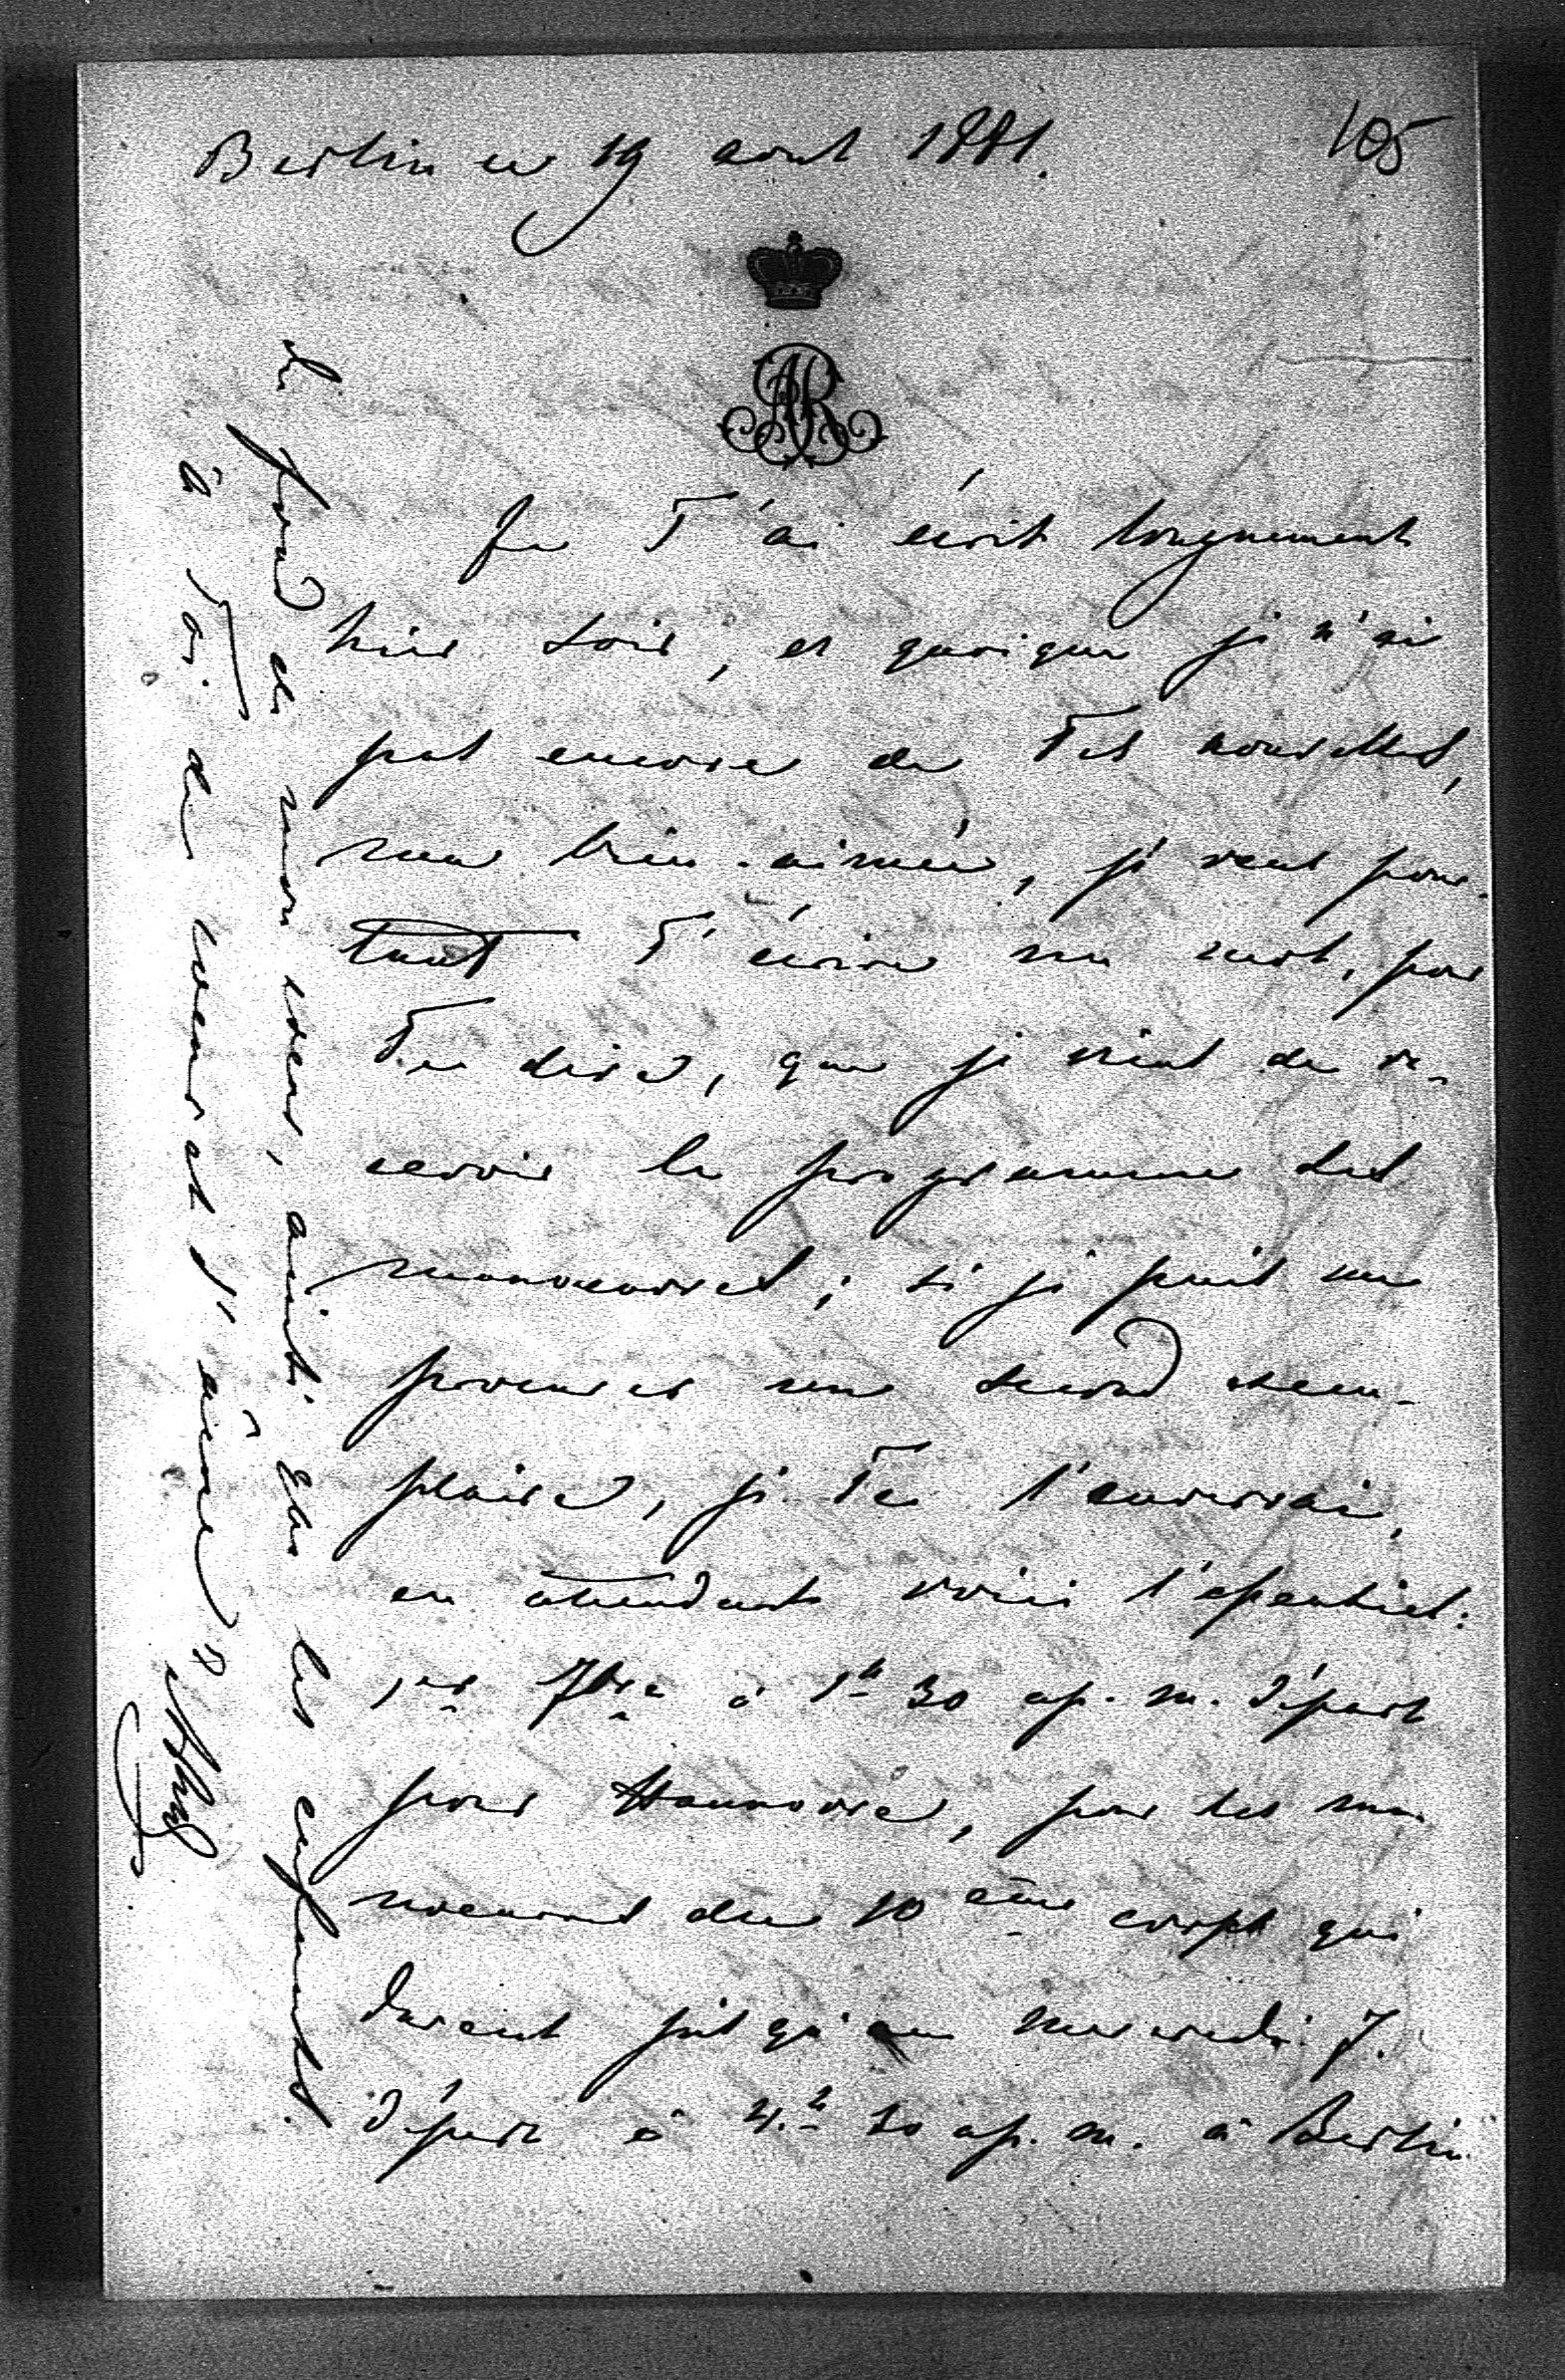 105
Berlin ce 19 aout 1881.
AR
Je T'ai écrit longuement
hier soir, et quoique je n'ai
pas encore de Tes nouvelles,
ma bien-aimée, je veux pour-
tant T'écrire un mot, pour
Te dire, que je viens de re-
cevoir le programme des
manoeuvres; si je puis me
procurer un second exem-
plaire, je Te l'enverrai,
en attendant voici l'essentiel:
1er 7bre à 1h 30 ap. m. départ
pour Hannovre, pour les ma-
noeuvres du 10ème corps qui
durent jusqu'au mercredi 7.
départ à 4h 30 ap. m. à Berlin
du fond de mon coeur, ainsi que les enfants.
à Toi de coeur et d'âme